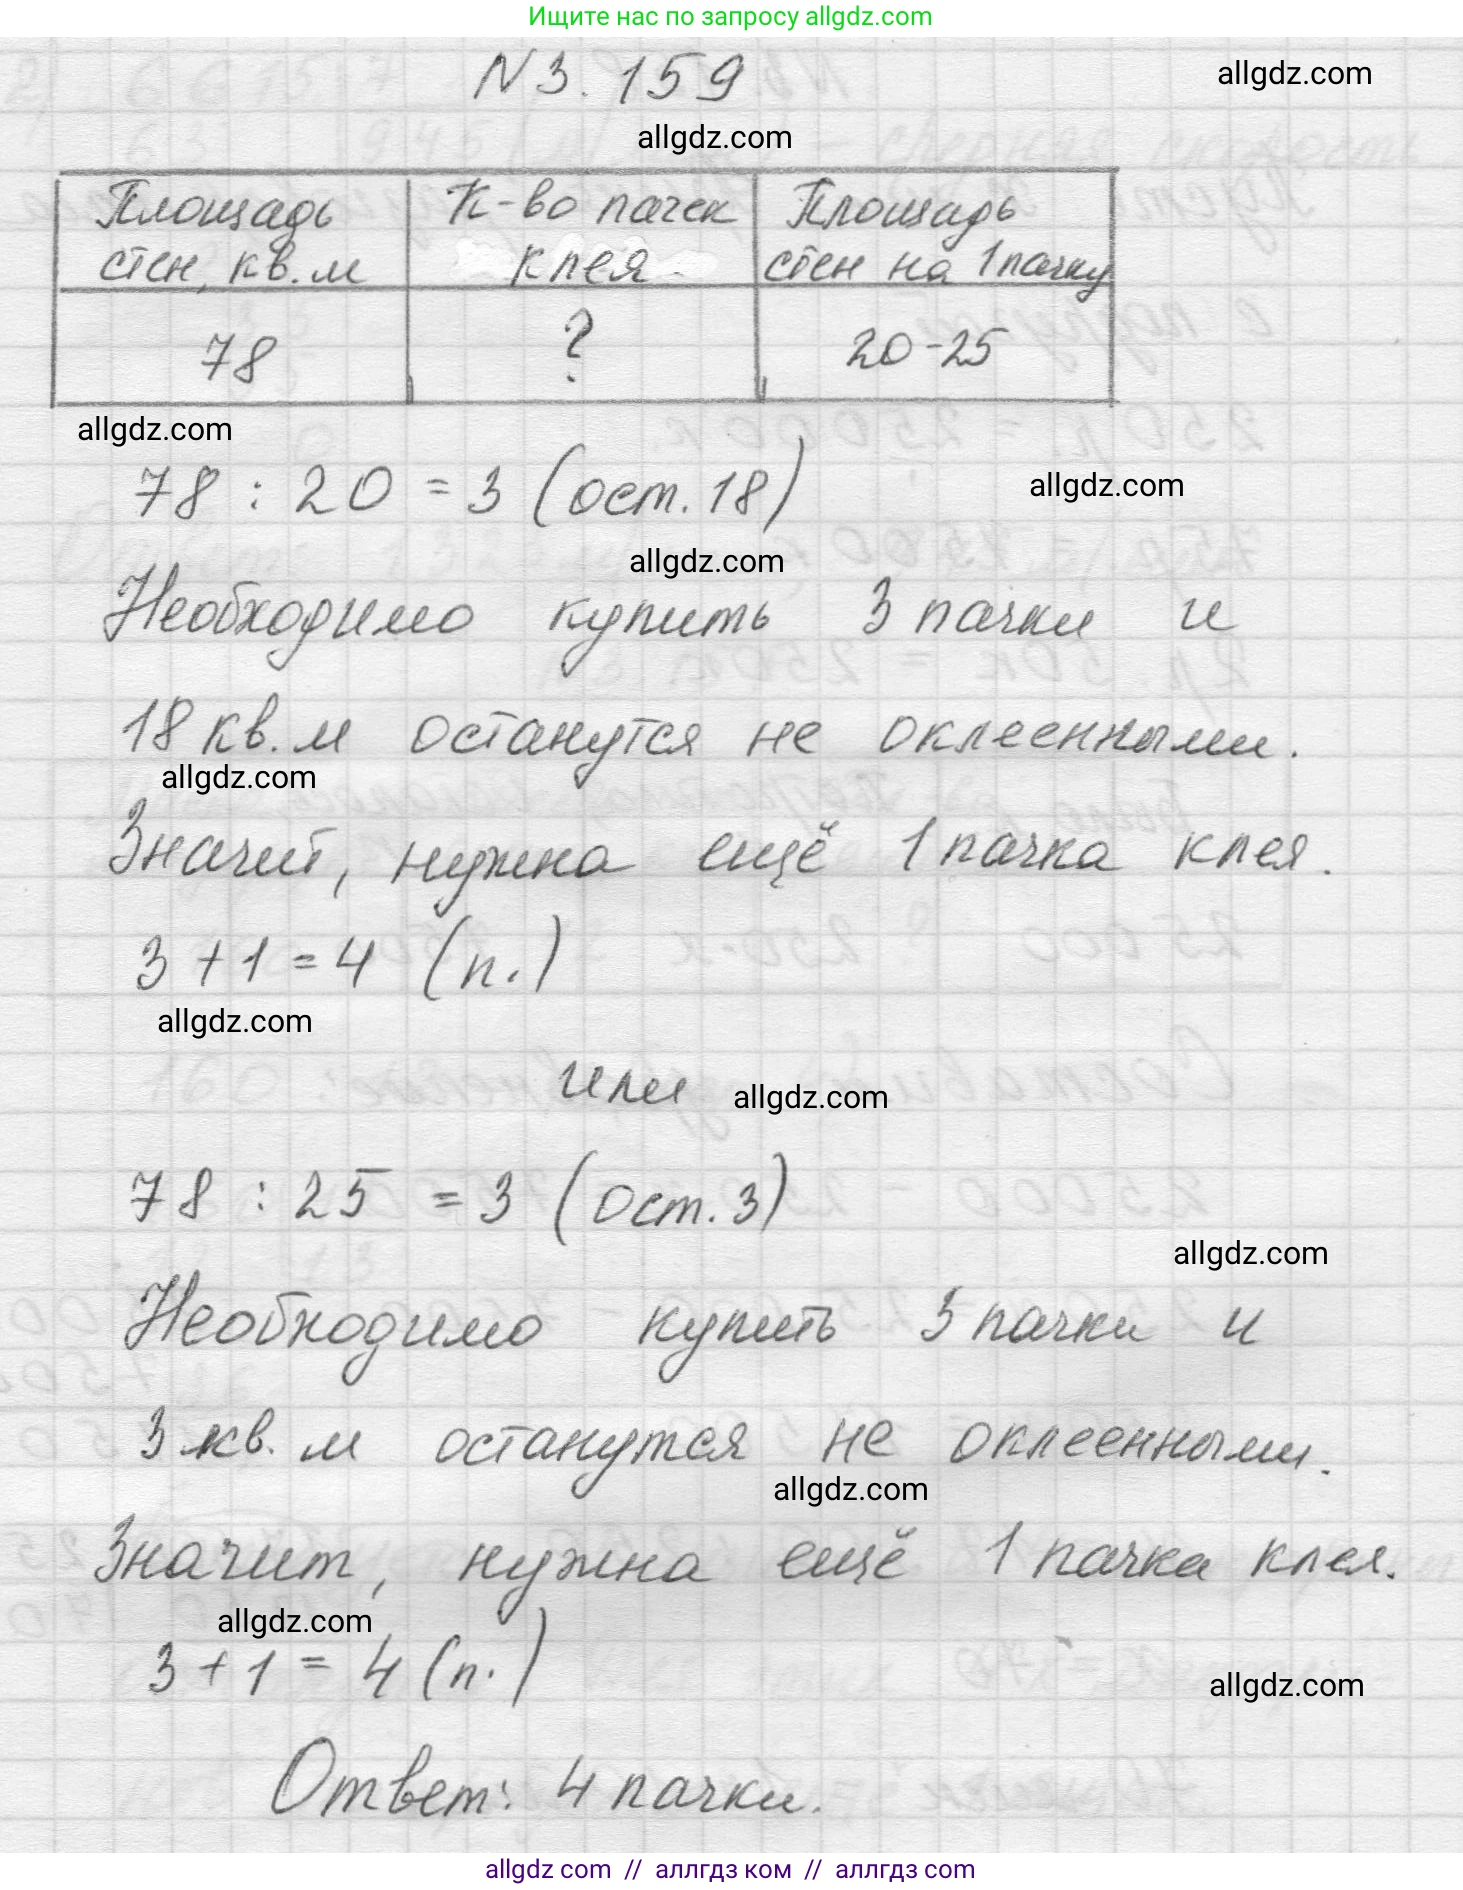 Ищите нас по запросу allgdz.com
N 3. 159
allgdz.com
allgdz.com
Площадь стен, кв. м
К-во пачек клея
Площадь стен на 1 пачку
78
?
20-25
allgdz.com
78 : 20 = 3 (ост. 18)
allgdz.com
allgdz.com
Необходимо купить 3 пачки и
18 кв. м останутся не оклеенными.
allgdz.com
Значит, нужна ещё 1 пачка клея.
3 + 1 = 4 (п.)
allgdz.com
или
allgdz.com
78 : 25 = 3 (ост. 3)
allgdz.com
Необходимо купить 3 пачки и
3 кв. м останутся не оклеенными.
allgdz.com
Значит, нужна ещё 1 пачка клея.
allgdz.com
3 + 1 = 4 (п.)
allgdz.com
Ответ: 4 пачки.
allgdz.com // аллгдз ком // аллгдз com